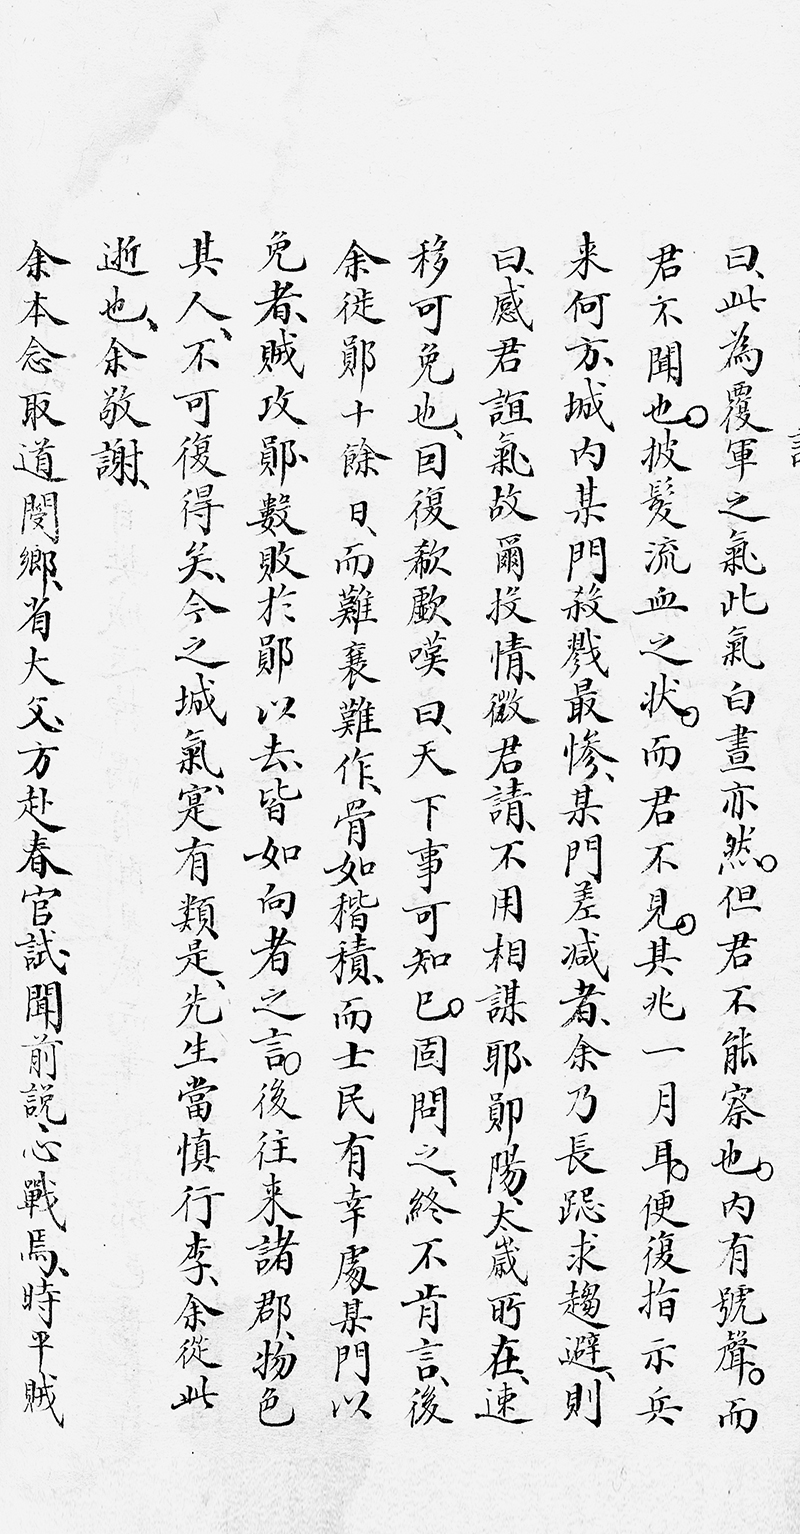 曰、此為覆軍之氣此氣白晝亦然。但君不能察也。內有號聲。而
君不聞也。披髮流血之狀。而君不見。其兆一月耳。便復指示兵
来何方、城內某門殺戮最慘、某門差减者、余乃長跽求趨避、則
曰、感君誼氣故爾投情、徵君請、不用相謀耶鄖陽、太歲所在、速
移可免也、因復欷歔嘆曰、天下事可知已。固問之、終不肯言、後
余徙鄖十餘日、而難襄難作、骨如稭積、而士民有幸處某門以
免者、賊攻鄖數敗於鄖以去、皆如向者之言。後往来諸郡、物色
其人、不可復得矣、今之城氣、寔有類是、先生當慎行李、余從此
逝也、余敬謝、
余本念取道閿鄉、省大父、方赴春官試、聞前説心戰焉、時平賊